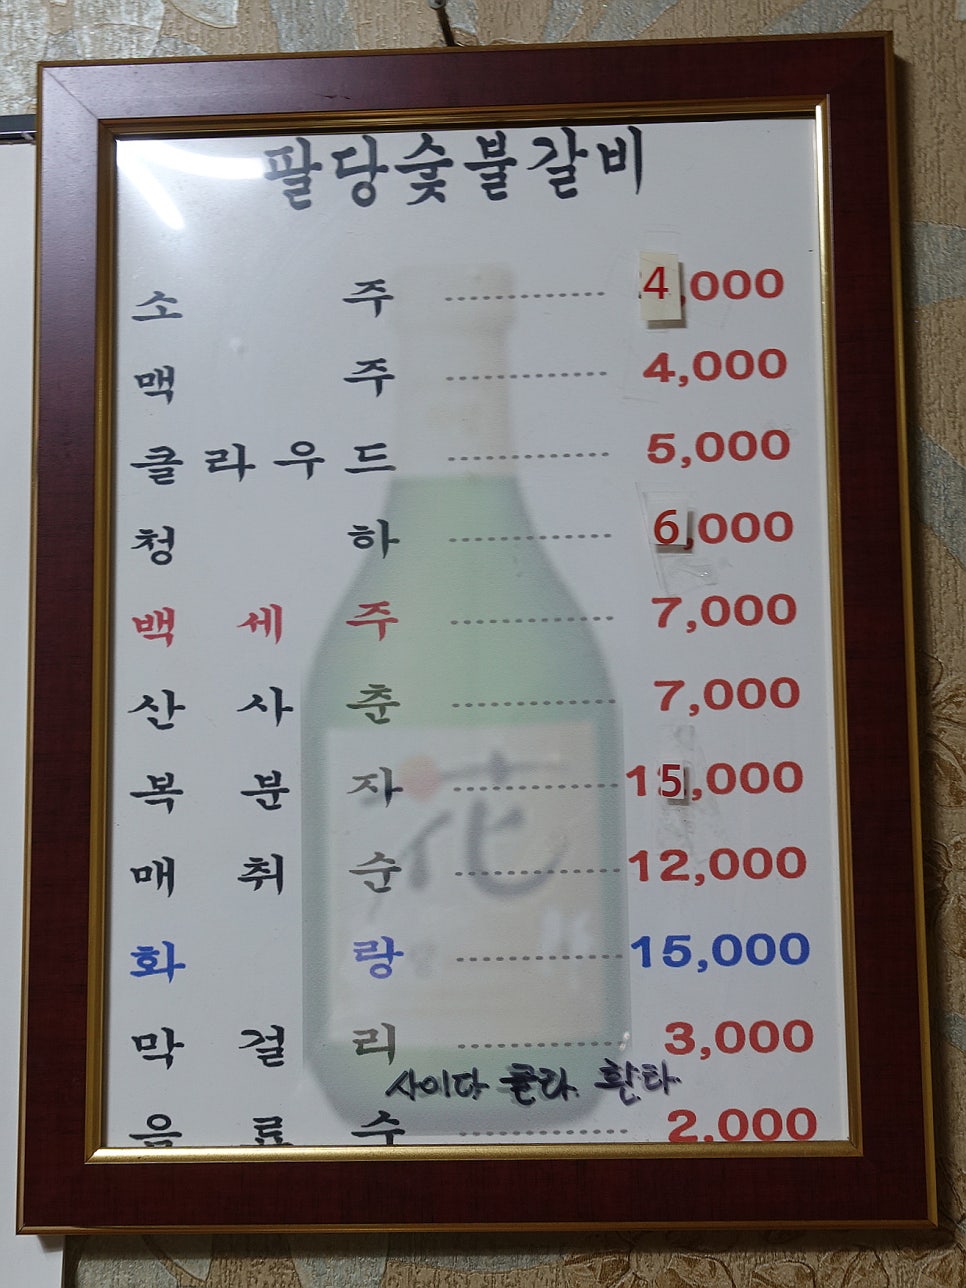 팔당숯불갈비
소 주 ................ 4,000
맥 주 ................ 4,000
클라우드 ................ 5,000
청 하 ................ 6,000
백 세 주 ................ 7,000
산 사 춘 ................ 7,000
복 분 자 ................ 15,000
매 취 순 ................ 12,000
화 랑 ................ 15,000
막 걸 리 ................ 3,000
사이다 콜라. 환타
음 료 수 ................ 2,000
花